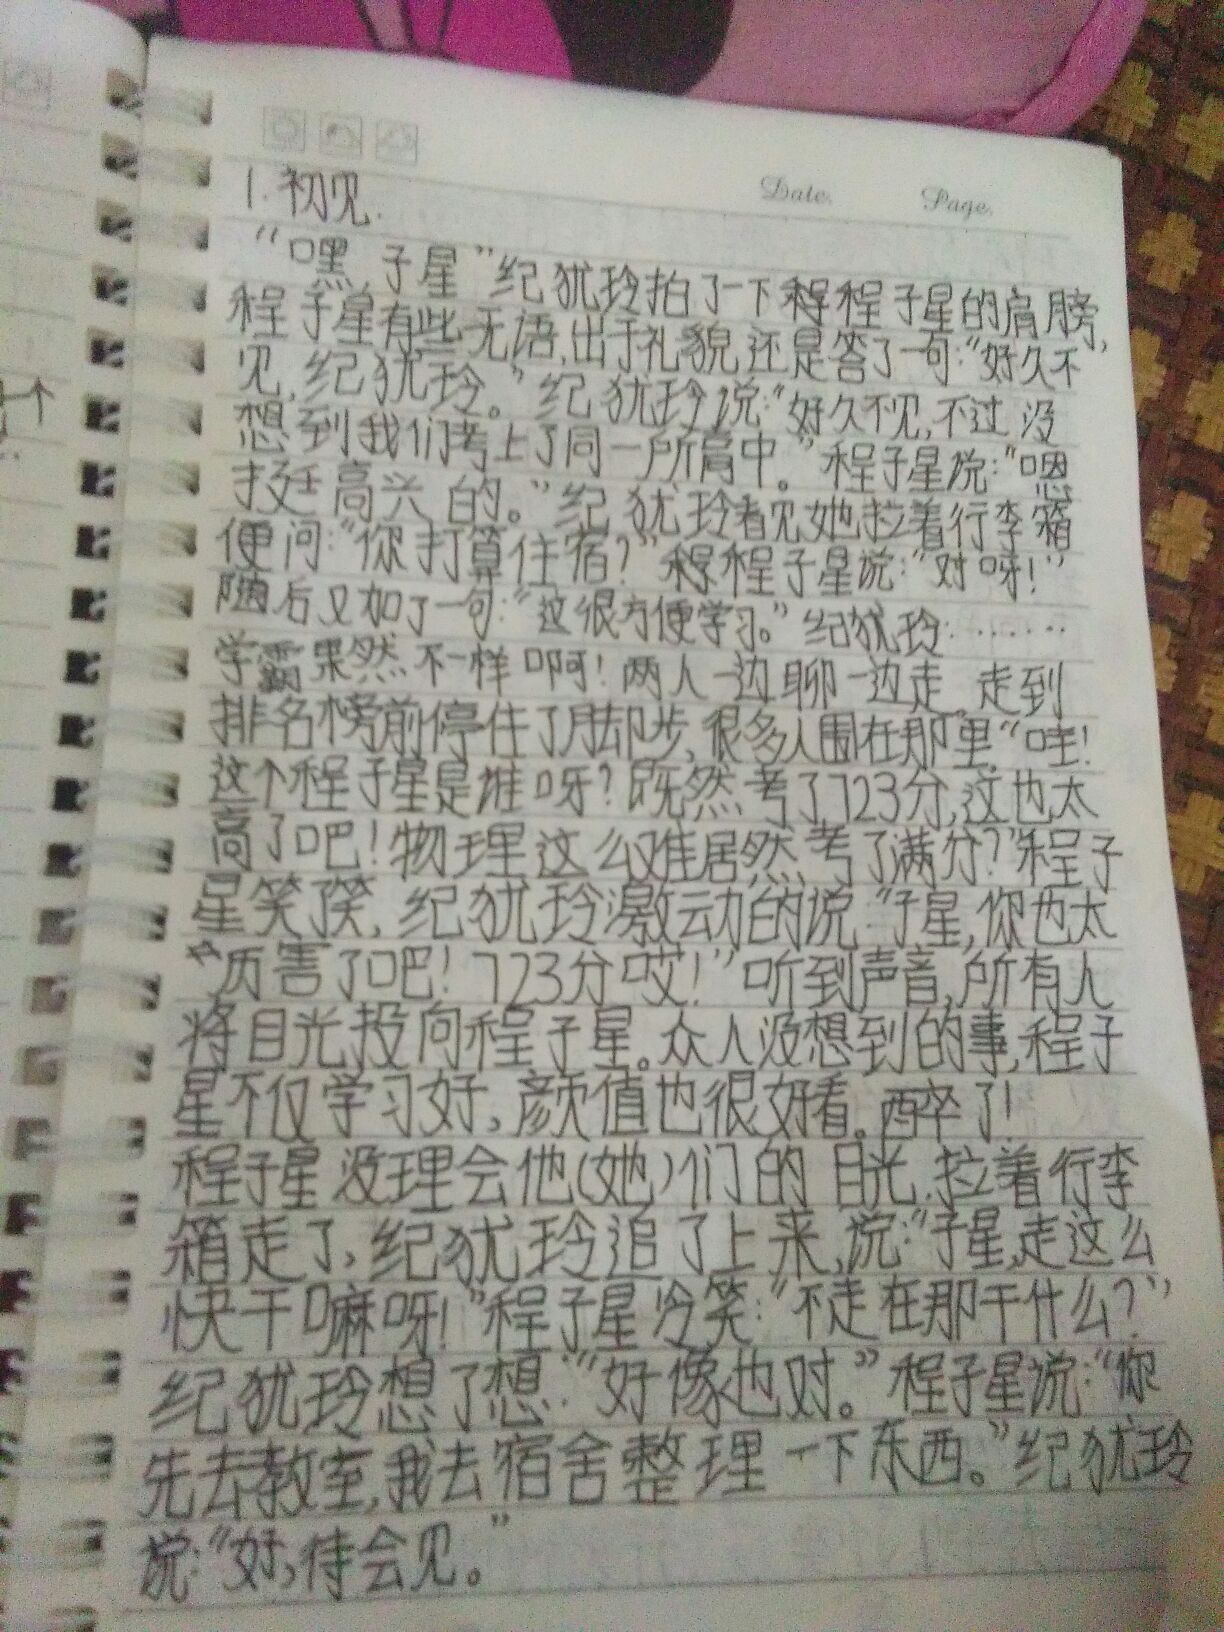 Date.
Page.
1.初见.
“嘿,子星”纪犹玲拍了一下程子星的肩膀,
程子星有些无语,出于礼貌,还是答了一句:“好久不
见,纪犹玲。”纪犹玲说:“好久不见,不过,没
想到我们考上了同一所高中。”程子星说:“嗯
挺高兴的。”纪犹玲看见她,拉着行李箱
便问:“你打算住宿?”程子星说:“对呀!”
随后又加了一句:“这很方便学习。”纪犹玲·······
学霸果然不一样啊!两人一边聊一边走。走到
排名榜前停住了脚步,很多人围在那里。“哇!
这个程子星是谁呀?既然考了723分,这也太
高了吧!物理这么难居然考了满分?”程子
星笑了笑,纪犹玲激动的说:“子星,你也太
厉害了吧!723分哎!”听到声音,所有人
将目光投向程子星。众人没想到的事,程子
星不仅学习好,颜值也很好看。醉了!
程子星没理会他(她)们的目光.拉着行李
箱走了,纪犹玲追了上来,说:“子星,走这么
快干嘛呀!”程子星冷笑:“不走在那干什么?”
纪犹玲想了想:“好像也对。”程子星说:“你
先去教室,我去宿舍整理一下东西。”纪犹玲
说:“好,待会见。”